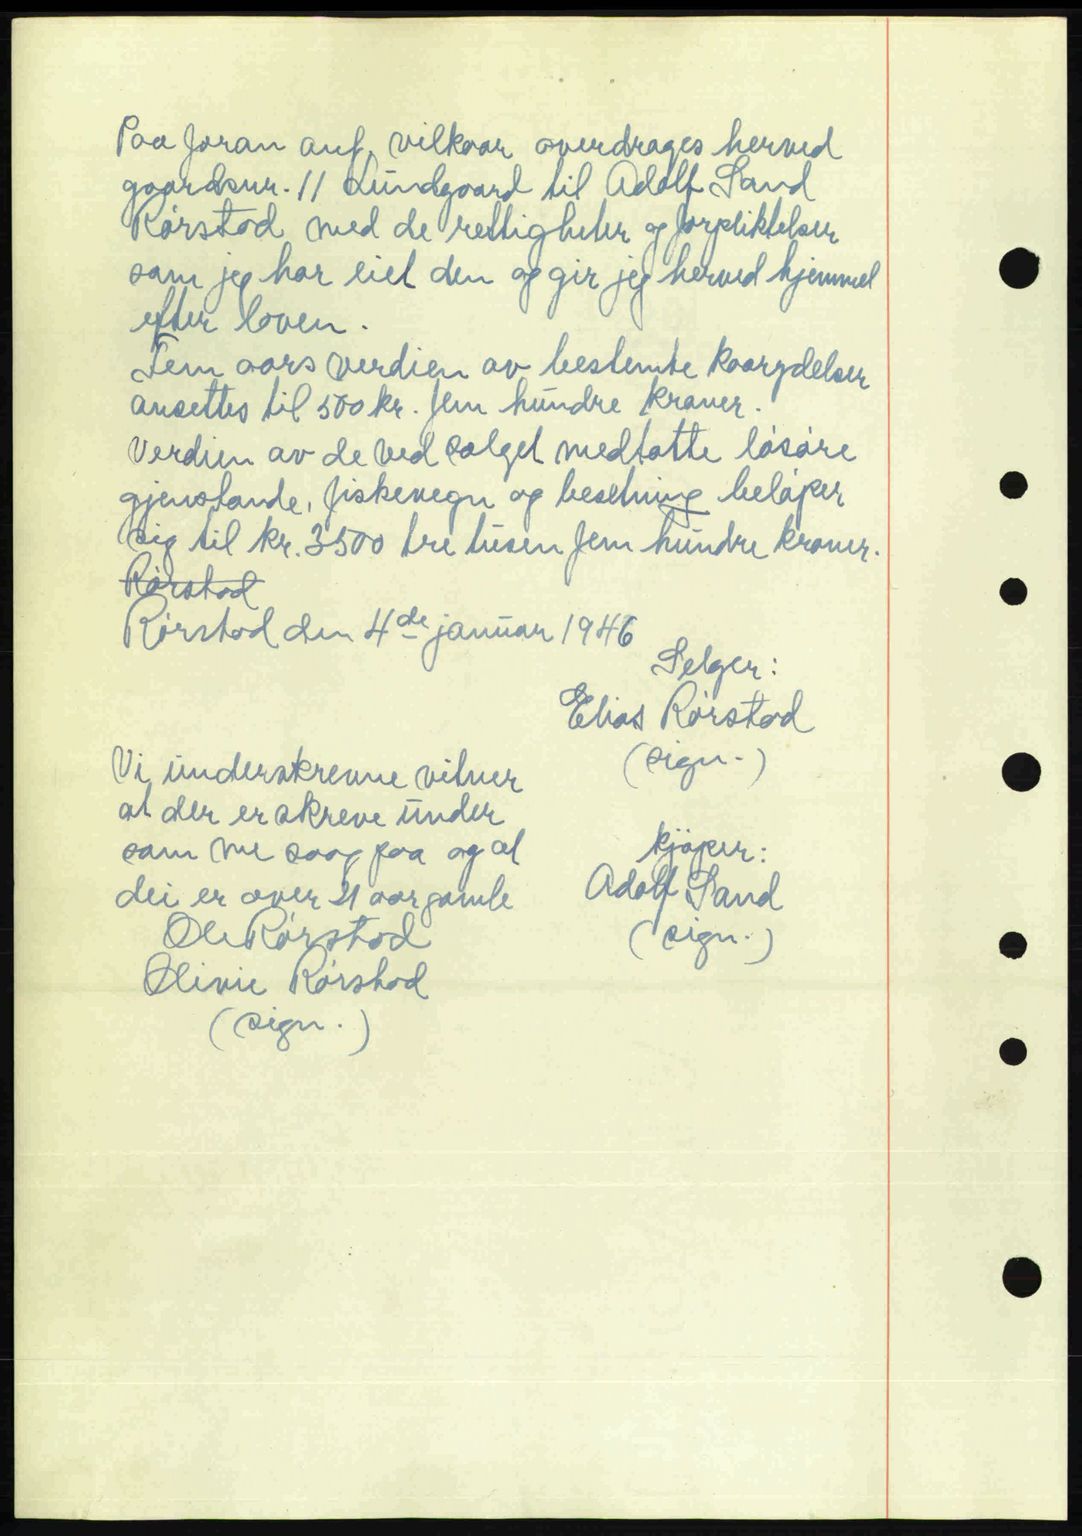 Paa foran anf. vilkaar overdrages herved
gaardsnr. 11 Lundgaard til Adolf Sand
Rørstad med de rettigheter og forpliktelser
som jeg har eiet den og gir jeg herved hjemmel
efter loven.
Fem aars verdien av bestemte kaarydelser
ansettes til 500 kr. fem hundre kroner.
Verdien av de ved salget medtatte løsøre
gjenstande, fiskevegn og besetning beløper
sig til kr. 3500 tre tusen fem hundre kroner.
Rørstad
Rørstad den 4de januar 1946
Selger:
Elias Rørstad
(sign.)
Vi underskrevne vitner
at der er skreve under
som me saag paa og at
dei er over 21 aar gamle
Ole Rørstad
Olivie Rørstad
(sign.)
kjøper:
Adolf Sand
(sign.)